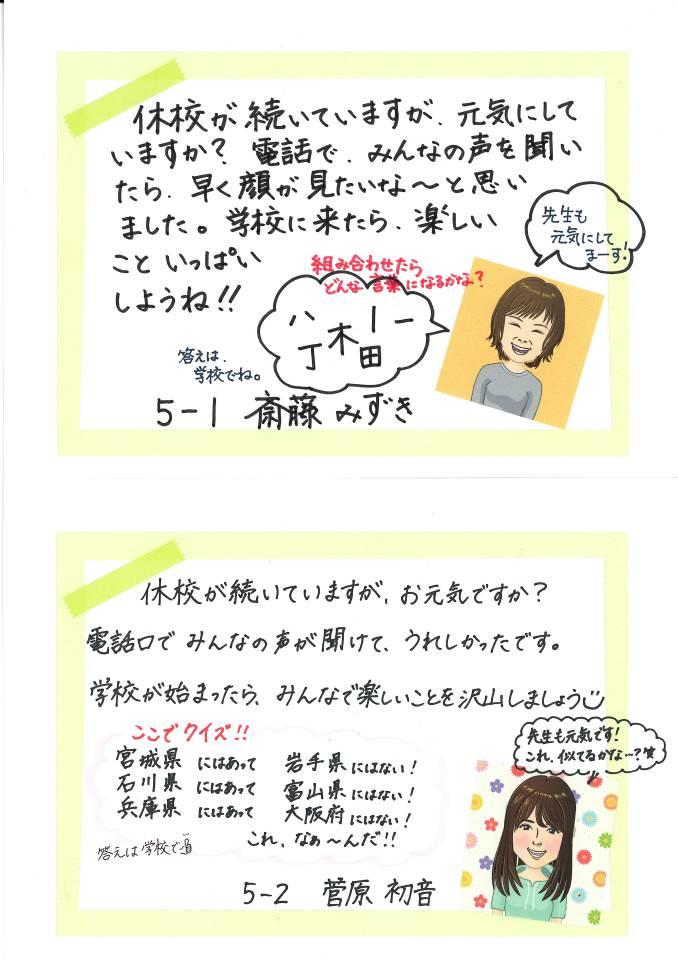 休校が続いていますが、元気にして
いますか？電話で、みんなの声を聞い
たら、早く顔が見たいな〜と思い
ました。学校に来たら、楽しい
こといっぱい
しようね!!
先生も
元気にして
まーす!
組み合わせたら
どんな言葉になるかな？
八 丁 木 l 田 一
答えは、
学校でね。
5-1 斎藤 みずき
休校が続いていますが、お元気ですか？
電話口でみんなの声が聞けて、うれしかったです。
学校が始まったら、みんなで楽しいことを沢山しましょう
ここでクイズ!!
宮城県 にはあって 岩手県にはない!
石川県 にはあって 富山県にはない!
兵庫県 にはあって 大阪府にはない!
これ、なぁ〜んだ!!
答えは学校で
先生も元気です!
これ、似てるかな…?
5-2 菅原 初音